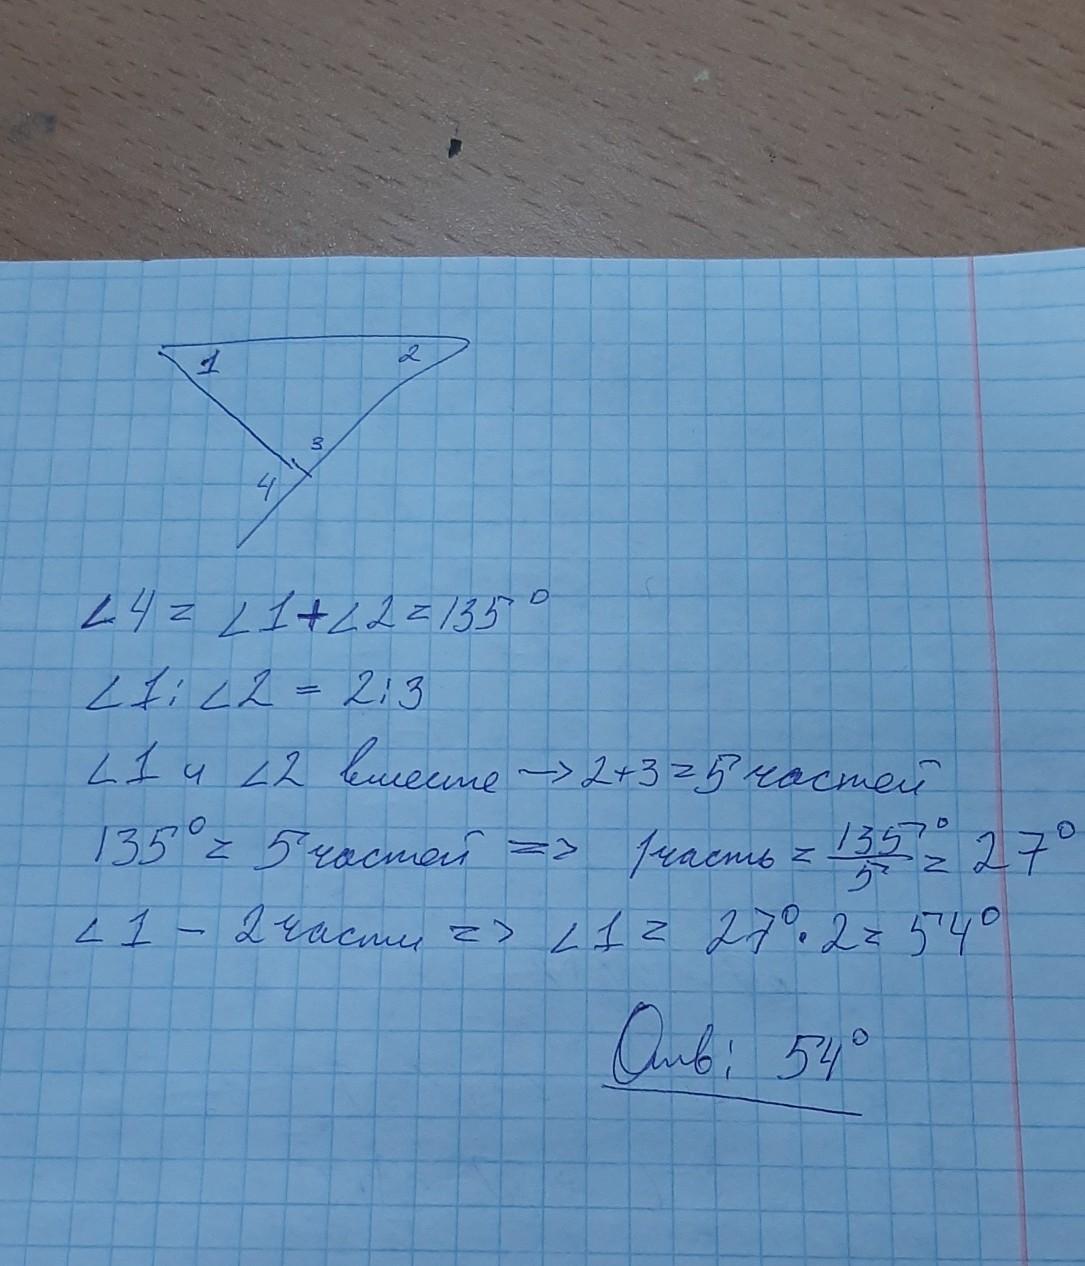 1 2
3
4
∠4 = ∠1+∠2 = 135°
∠1 : ∠2 = 2:3
∠1 и ∠2 вместе → 2+3 = 5 частей
135° = 5 частей => 1 часть = 135°/5 = 27°
∠1 – 2 части => ∠1 = 27°·2 = 54°
Отв: 54°